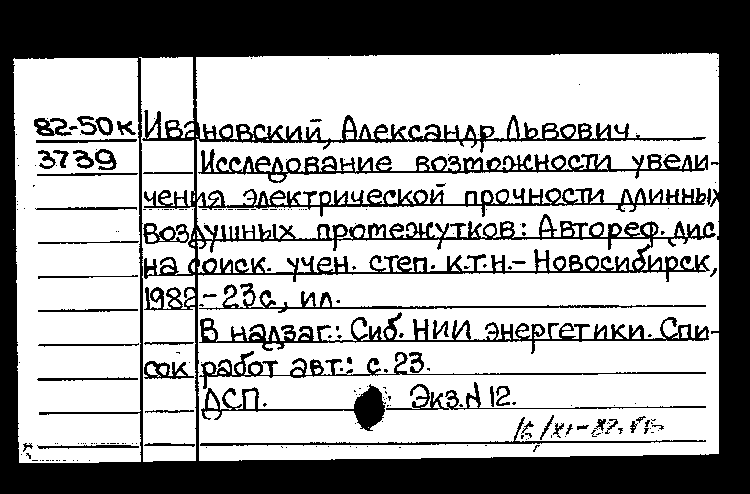 82-50к Ивановский, Александр Львович.
3739 Исследование возможности увели-
чения электрической прочности длинных
воздушных протежутков: Автореф. дис.
на соиск. учен. степ. к.т.н.- Новосибирск,
1982.- 23с., ил.
В надзаг.: Сиб. НИИ энергетики. Спи-
сок работ авт.: с. 23.
ДСП. Экз.N 12.
16/XI-82.